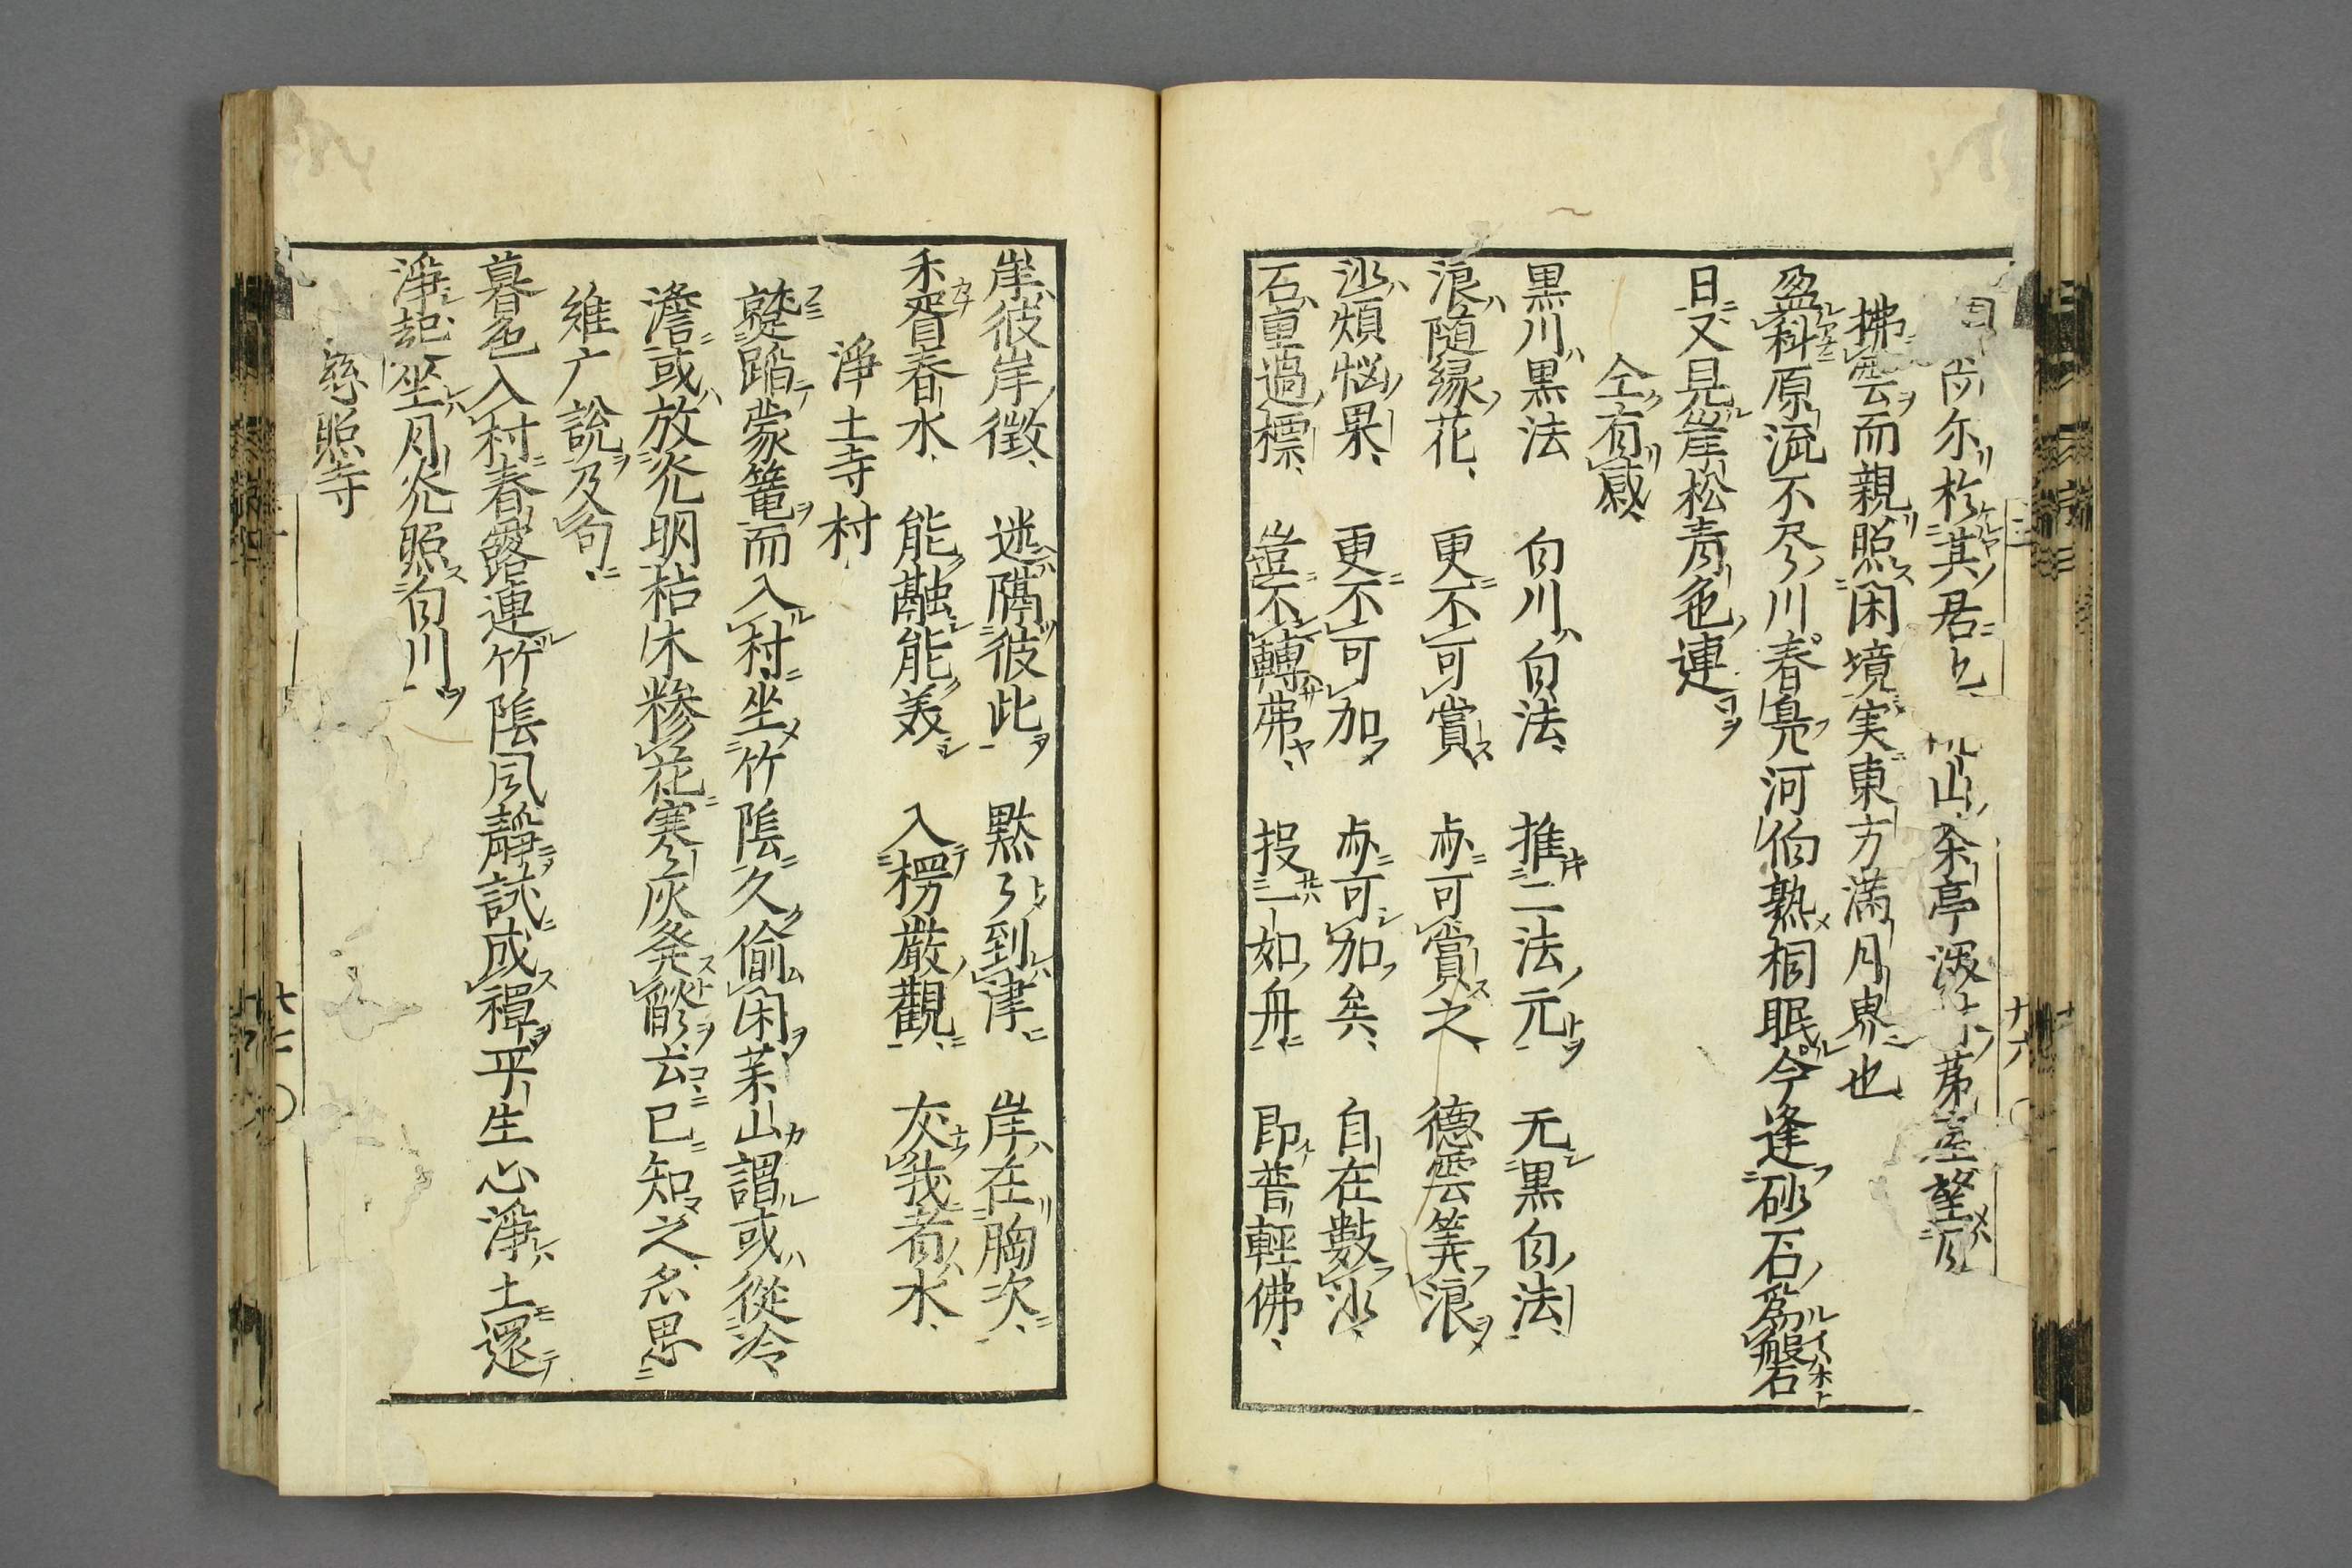 尓於其君也 山余亭 茅室望月
拂雲而親照閑境実東方満月界也
盈科原流不尽川春鳧河伯熟桐眠今逢砂石為磐石
日又見崖松青色連
仝有感
黒川黒法 白川白法 推二法元 无黒白法
浪随縁花 更不可賞 亦可賞之 徳雲筭浪
沙煩悩果 更不可加 亦可加矣 自在数沙
石重過標 豈不轉弗 投一如舟 即普軽佛
崖彼岸徴 迷隔彼此 黙々到津 岸在胸次
禾胥春水 能融能美 入楞厳觀 灰我者水
淨土寺村
躄蹈蒙篭而入村坐竹陰久偷閑茉山謂或從冷
澹或放光明枯木糁花寒々灰発燄云已知之名思
維广説及句
暮色入村春露連竹陰風靜試成禪平生心淨土還
淨起坐月光照白川
慈照寺